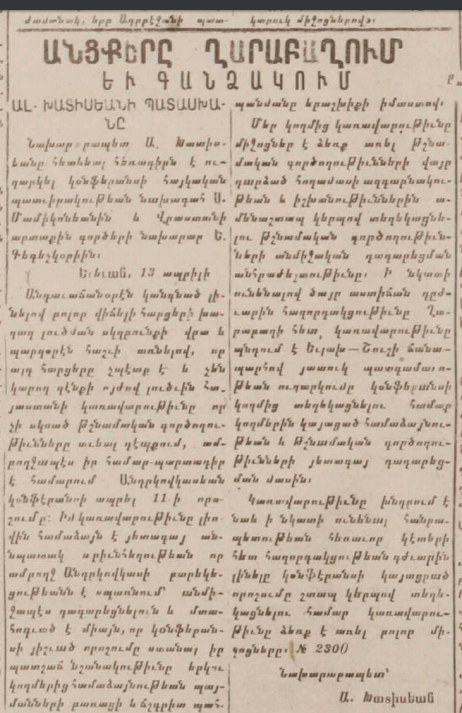 ժամանակ, երբ Ադրբէջանի պատ-
կարուկ միջոցներով։
ԱՆՑՔԵՐԸ ՂԱՐԱԲԱՂՈՒՄ
ԵՒ ԳԱՆՁԱԿՈՒՄ
ԱԼ. ԽԱՏԻՍԵԱՆԻ ՊԱՏԱՍԽԱ-
ՆԸ
Նախարարապետ Ա. Խատիս-
եանը հետևեալ հեռագիրն է ու-
ղարկել կօնֆերանսի հայկական
պատւիրակութեան նախագահ Ս.
Մամիկոնեանին և Վրաստանի
արտաքին գործերի նախարար Ե.
Գեգեչկորիին։
Երեւան, 13 ապրիլի
Անդաւաճանօրէն կանգնած լի-
նելով բոլոր վիճելի հարցերի խա-
ղաղ լուծման սկզբունքի վրա և
պարզօրէն հաշւի առնելով, որ
այդ հարցերը չպէտք է և չեն
կարող զէնքի ոյժով լուծւին Հա-
յաստանի կառավարութիւնը ոչ մի
չի սկսած թշնամական գործողու-
թիւնները ունեալ դէպքում, ամ-
բողջապէս իր համար պարտադիր
է համարում Անդրկովկասեան
կօնֆէրանսի ապրիլ 11-ի որո-
շումը։ Իմ կառավարութիւնը լիո-
վին համաձայն է յետագայ ան-
նպատակ արիւնհեղութեան որ
ամբողջ Անդրկովկասի բարեկե-
ցութեանն է սպառնում անմի-
ջապէս դադարեցնելուն և մտա-
հոգւած է միայն, որ կօնֆերան-
սի յիշւած որոշումը ստանալ իր
պատշաճ նշանակութիւնը երկու
կողմերից համաձայնութեան պայ-
մանների բառացի և ճշգրիտ պահ-
պանմանը երաշխիքի իմաստով։
Մեր կողմից կառավարութիւնը
միջոցներ է ձեռք առել թշնա-
մական գործողութիւնների վայր
դարձած հողամասի ազգաբնակու-
թեան և իշխանութիւններին ա-
մենաշտապ կերպով տեղեկացնե-
լու թշնամական գործողութիւն-
ների անմիջական դադարեցման
անհրաժեշտութիւնը։ Ի նկատի
ունենալով ծայր աստիճան դժւ-
արին հաղորդակցութիւնը Ղա-
րաբաղի հետ, կառավարութիւնը
պնդում է Եւլախ—Շուշի ճանա-
պարհով յատուկ պատգամաւո-
թեան ուղարկումը կօնֆերանսի
կողմից տեղեկացնելու համար
կողմերին կայացած համաձայնու-
թեան և թշնամական գործողու-
թիւնների յետագայ դադարեց-
ման մասին։
Կառավարութիւնը խնդրում է
նաև ի նկատի ունենալ հանրա-
պետութեան հեռաւոր կէտերի
հետ հաղորդակցութեան դժւարին
լինելը կօնֆէրանսի կայացրած
որոշումը շտապ կերպով տեղե-
կացնելու համար կառավարու-
թիւնը ձեռք է առել բոլոր մի-
ջոցները։ № 2300
Նախարարապետ՝
Ա. Խատիսեան